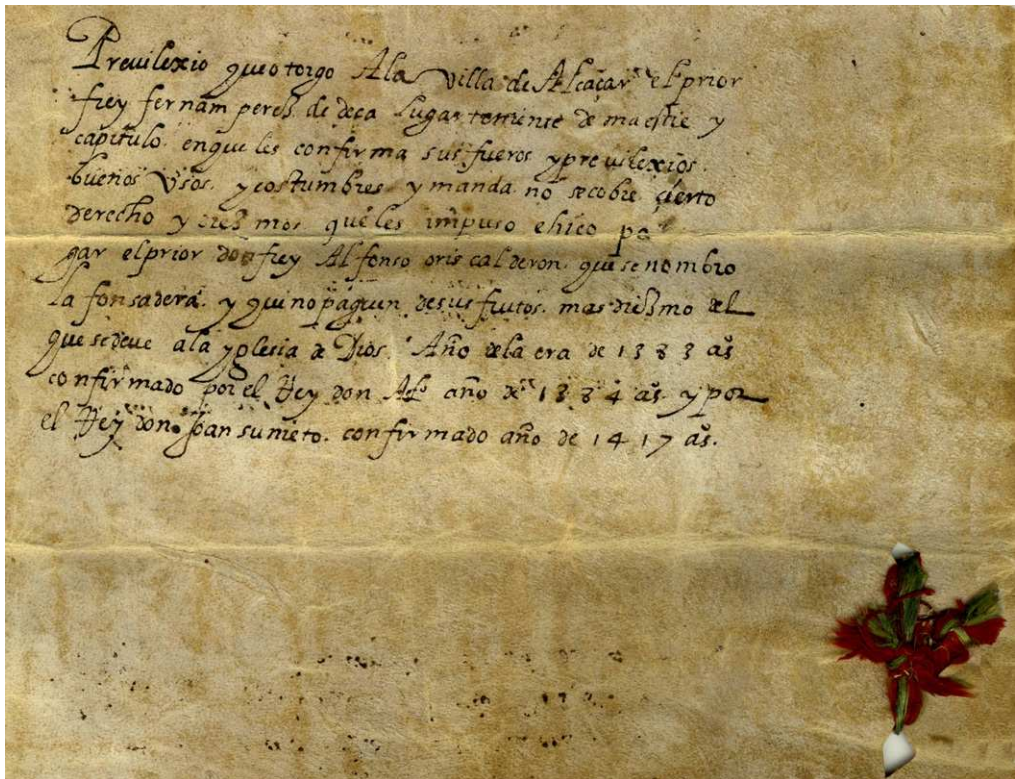 Previlexio que otorgo A la villa de Alcaçar el prior
frey fernam perez de deça lugar teniense de maestre y
capitulo en que les confirma sus fueros y previlexios
buenos Vsos y costumbres y manda no se cobre çierto
derecho y diezmos que les impuso e hiço pa
gar el prior don frey Alfonso oris calderon que se nombro
la fonsadera y qui no paguen de sus frutos mas diezmo del
que se deve a la yglesia de Dios Año de la era de 1383 as
confirmado por el Rey don Alº año de 1384 as y por
el Rey dono Joan su nieto confirmado año de 1417 as.